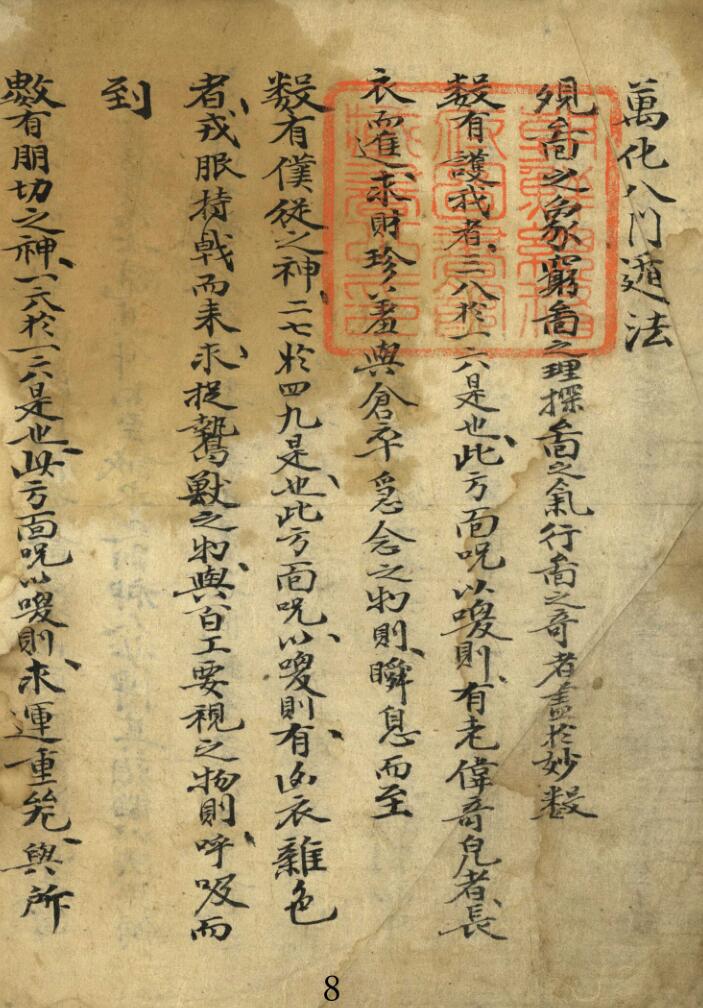 萬化八門遁法
現啇之象窮啇之理探啇之氣行啇之奇者盡於妙數
數有護我者三八於一六是也此方面呪以嗄則有老偉奇皃者長
衣而進求財珍羞與倉卒急念之物則瞬息而至
數有僕從之神二七於四九是也此方面呪以嗄則有凶衣雜色
者戎服持戟而来求捉鷙獸之物與百工要視之物則呼吸而
到
數有朋切之神一六於一六是也此方面呪以嗄則求運重
與所
8